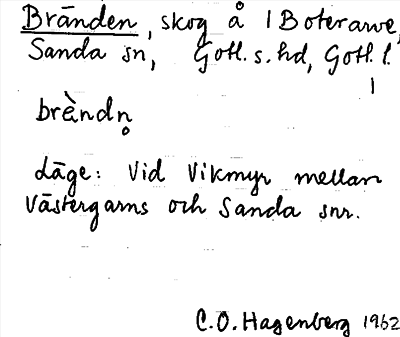 Bränden, skog å 1 Boterarve,
Sanda sn, Gotl. s. hd, Gotl. l.
brè̀ndn̥
Läge: Vid Vikmyr mellan
Västergarns och Sanda snr.
C.O. Hagenberg 1962